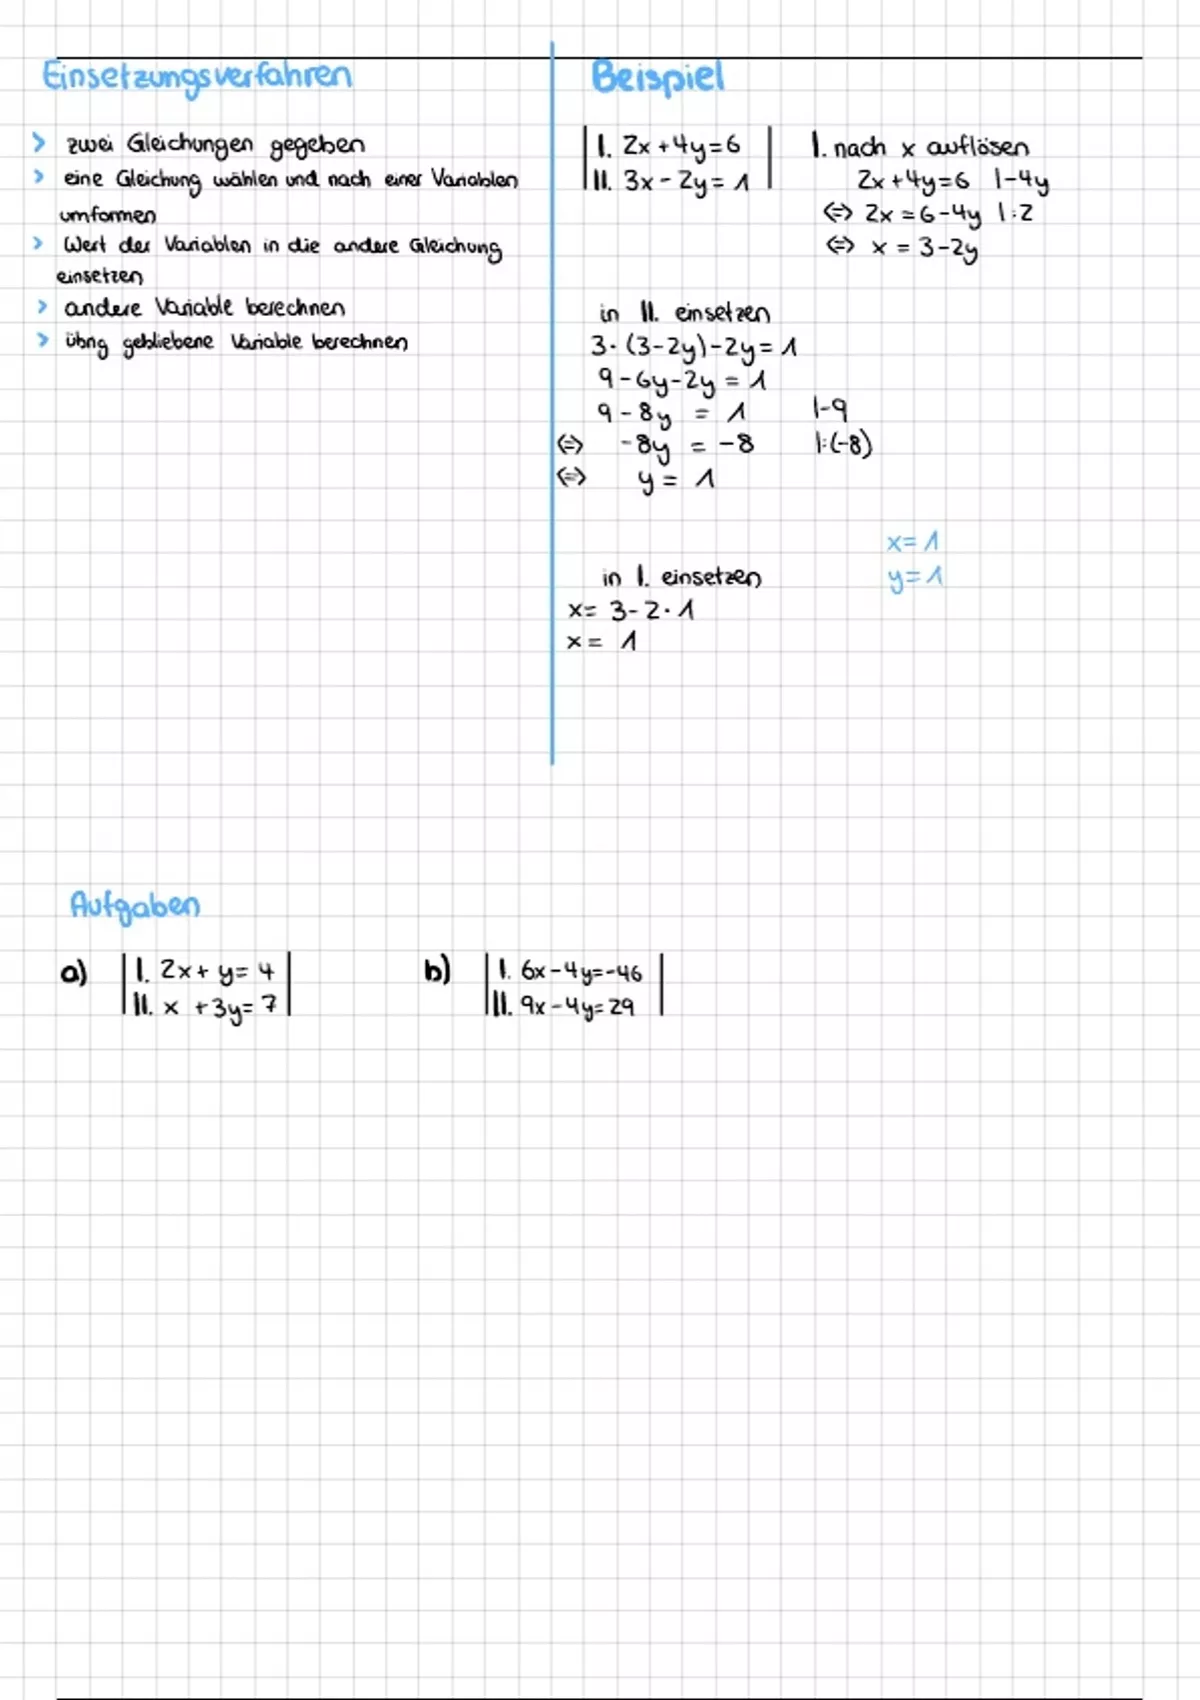 Einsetzungsverfahren
> zwei Gleichungen gegeben
> eine Gleichung wählen und nach einer Variablen
umformen
> Wert der Variablen in die andere Gleichung
einsetzen
> andere Variable berechnen
> übrig gebliebene Variable berechnen
Beispiel
| I. 2x + 4y = 6 |
| II. 3x - 2y = 1 |
I. nach x auflösen
2x + 4y = 6 |-4y
<=> 2x = 6 - 4y |:2
<=> x = 3 - 2y
in II. einsetzen
3·(3-2y)-2y = 1
9 - 6y - 2y = 1
9 - 8y = 1 |-9
<=> -8y = -8 |:(-8)
<=> y = 1
x = 1
y = 1
in I. einsetzen
x = 3 - 2·1
x = 1
Aufgaben
a) | I. 2x + y = 4 |
| II. x + 3y = 7 |
b) | I. 6x - 4y = -46 |
| II. 9x - 4y = 29 |